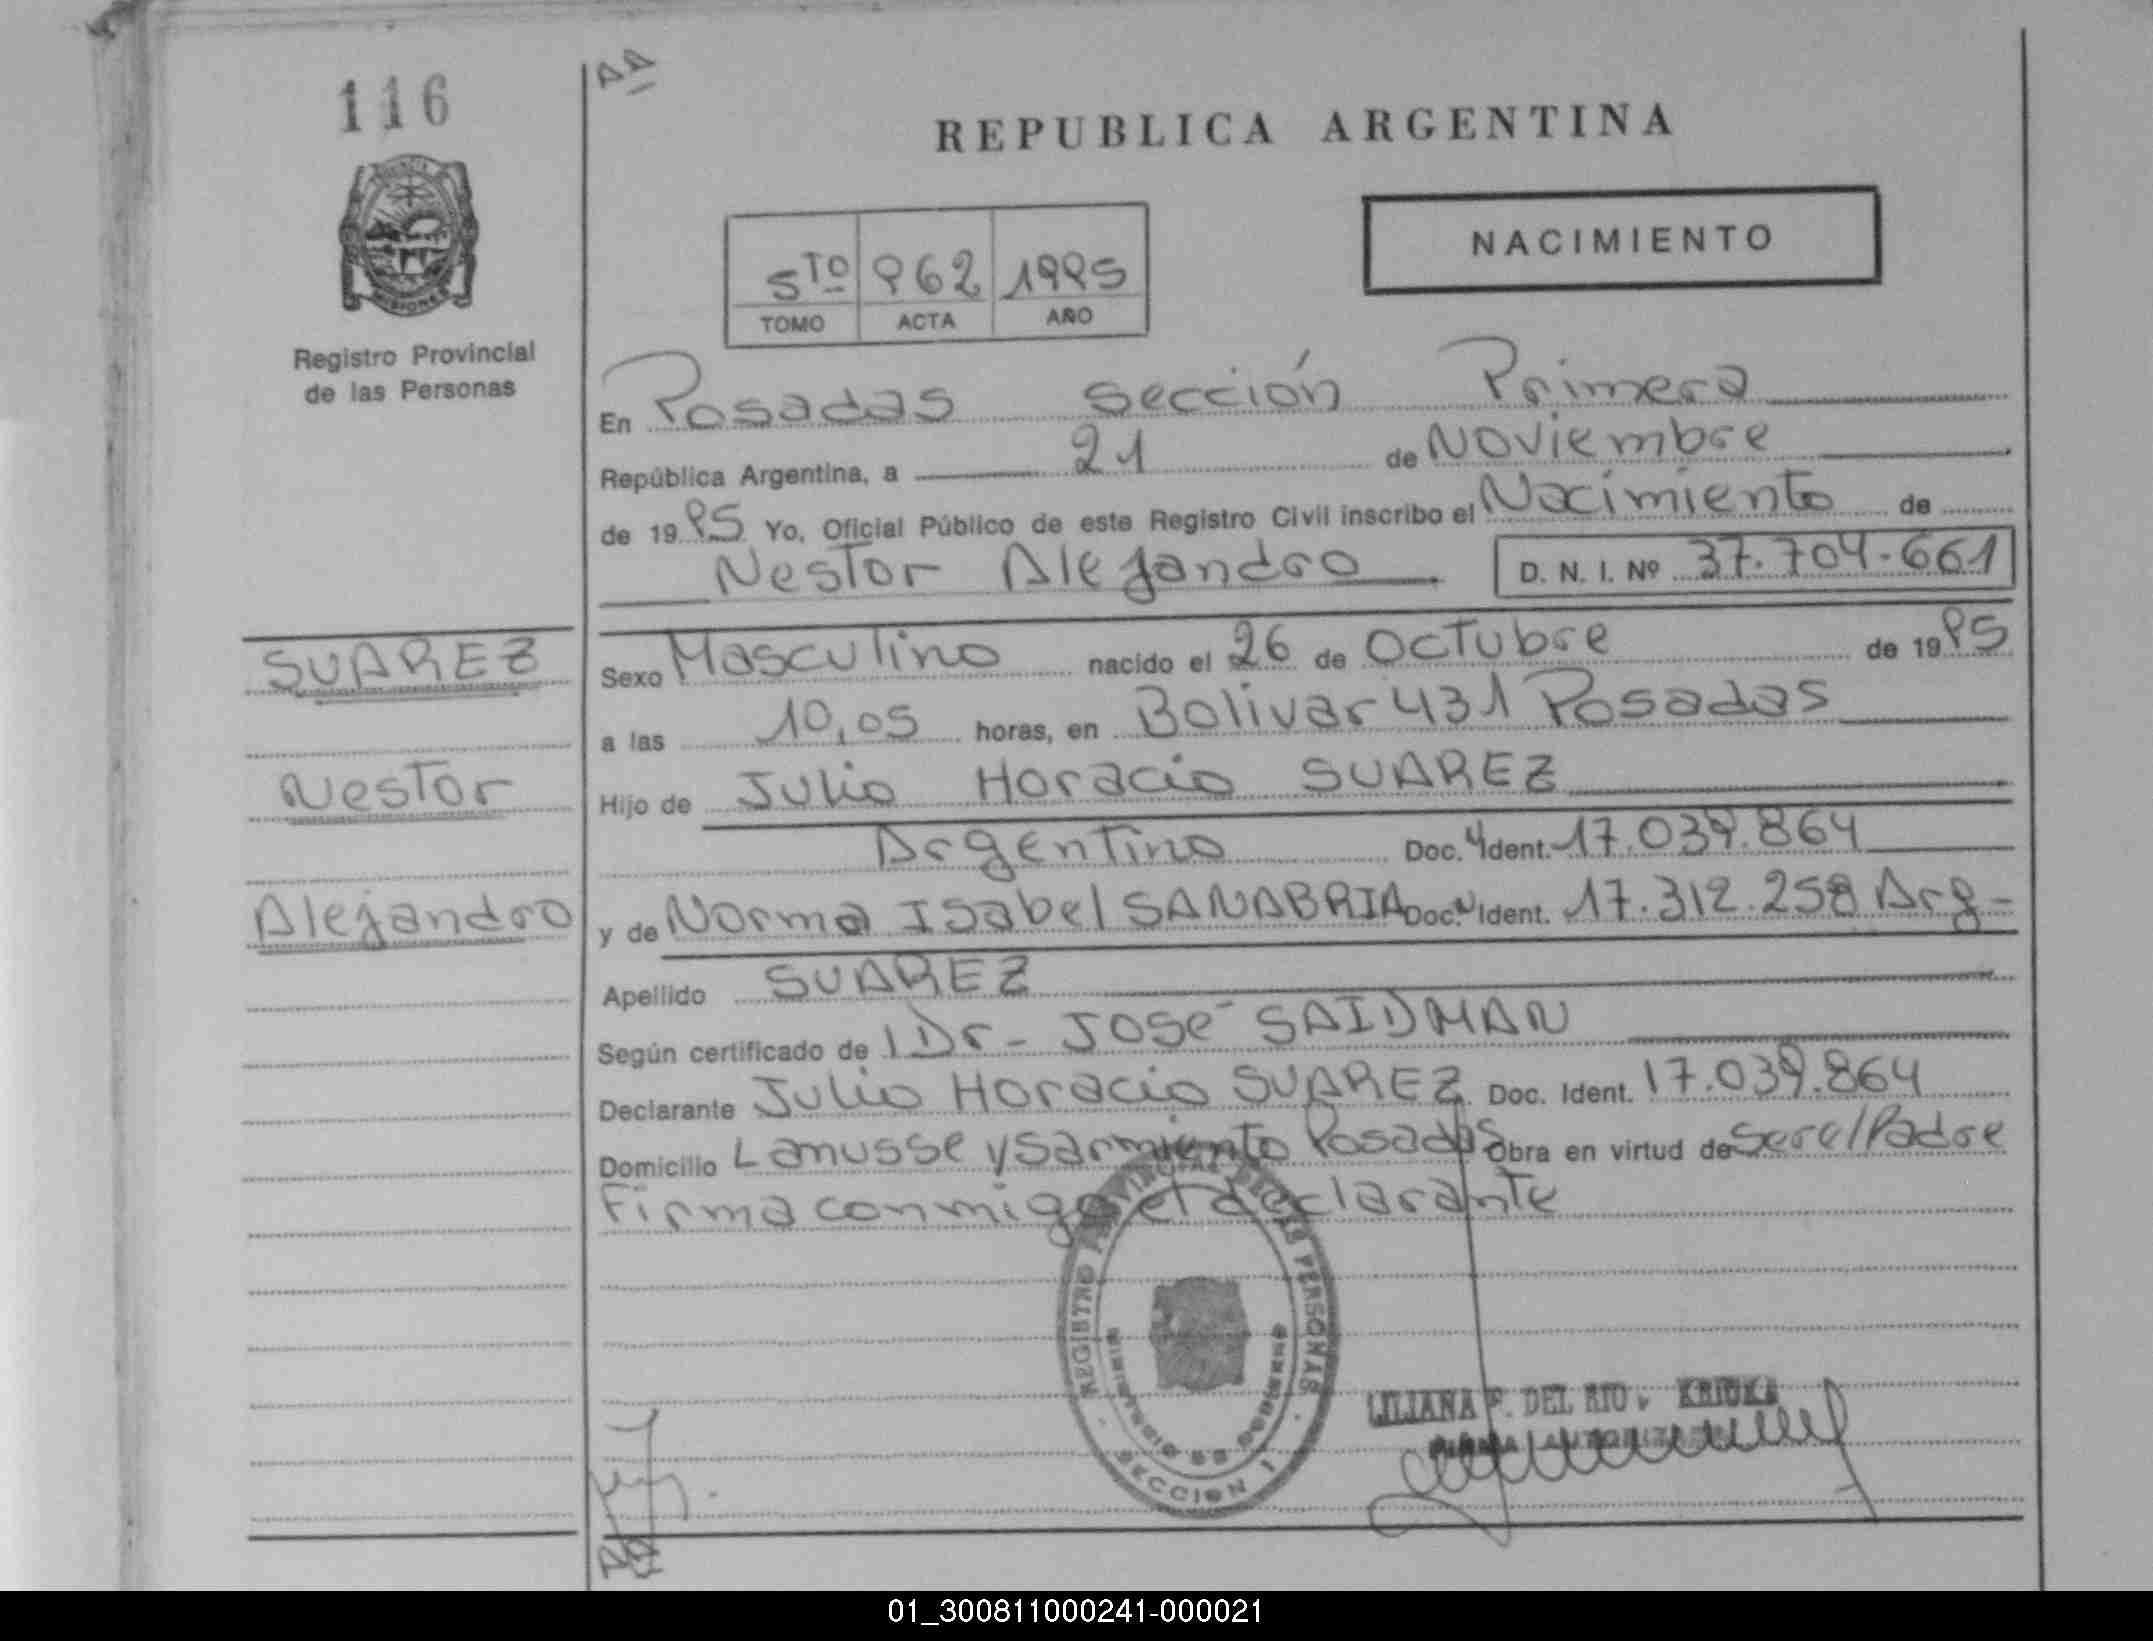 116
REPUBLICA ARGENTINA
NACIMIENTO
5TO 962 1995
TOMO ACTA AÑO
Registro Provincial
de las Personas
En Posadas sección Primera
República Argentina, a 21 de Noviembre
de 1995 Yo, Oficial Público de este Registro Civil inscribo el Nacimiento de
Nestor Alejandro D. N. I. Nº 37.704.661
SUAREZ
Nestor
Alejandro
Sexo Masculino nacido el 26 de Octubre de 1995
a las 10,05 horas, en Bolivar 431 Posadas
Hijo de Julio Horacio SUAREZ
Argentino Doc. Ident. 17.039.864
y de Norma Isabel SANABRIA Doc. Ident. 17.312.258 Arg-
Apellido SUAREZ
Según certificado de Dr- José SAIDMAN
Declarante Julio Horacio SUAREZ Doc. Ident. 17.039.864
Domicilio Lanusse y Sarmiento Posadas Obra en virtud de ser el Padre
Firma conmigo el declarante
REGISTRO PROVINCIAL DE LAS PERSONAS
MINISTERIO DE GOBIERNO
SECCION 1
LILIANA F. DEL RIO
01_300811000241-000021